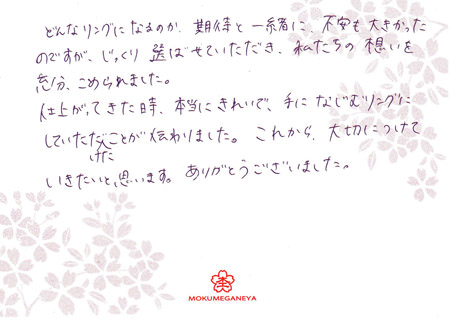 どんなリングになるのか、期待と一緒に、不安も大きかった
のですが、じっくり選ばせていただき、私たちの想いを
充分、こめられました。
仕上がってきた時、本当にきれいで、手になじむリングに
していただけたことが伝わりました。これから、大切につけて
いきたいと思います。ありがとうございました。
MOKUMEGANEYA